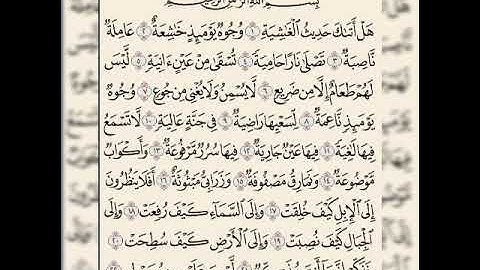 بِسْمِ اللَّهِ الرَّحْمَٰنِ الرَّحِيمِ
هَلْ أَتَىٰكَ حَدِيثُ الْغَٰشِيَةِ ١ وُجُوهٌ يَوْمَئِذٍ خَٰشِعَةٌ ٢ عَامِلَةٌ
نَّاصِبَةٌ ٣ تَصْلَىٰ نَارًا حَامِيَةً ٤ تُسْقَىٰ مِنْ عَيْنٍ ءَانِيَةٍ ٥ لَّيْسَ
لَهُمْ طَعَامٌ إِلَّا مِن ضَرِيعٍ ٦ لَّا يُسْمِنُ وَلَا يُغْنِي مِن جُوعٍ ٧ وُجُوهٌ
يَوْمَئِذٍ نَّاعِمَةٌ ٨ لِّسَعْيِهَا رَاضِيَةٌ ٩ فِي جَنَّةٍ عَالِيَةٍ ١٠ لَّا تَسْمَعُ
فِيهَا لَٰغِيَةً ١١ فِيهَا عَيْنٌ جَارِيَةٌ ١٢ فِيهَا سُرُرٌ مَّرْفُوعَةٌ ١٣ وَأَكْوَابٌ
مَّوْضُوعَةٌ ١٤ وَنَمَارِقُ مَصْفُوفَةٌ ١٥ وَزَرَابِيُّ مَبْثُوثَةٌ ١٦ أَفَلَا يَنظُرُونَ
إِلَى الْإِبِلِ كَيْفَ خُلِقَتْ ١٧ وَإِلَى السَّمَاءِ كَيْفَ رُفِعَتْ ١٨ وَإِلَى
الْجِبَالِ كَيْفَ نُصِبَتْ ١٩ وَإِلَى الْأَرْضِ كَيْفَ سُطِحَتْ ٢٠